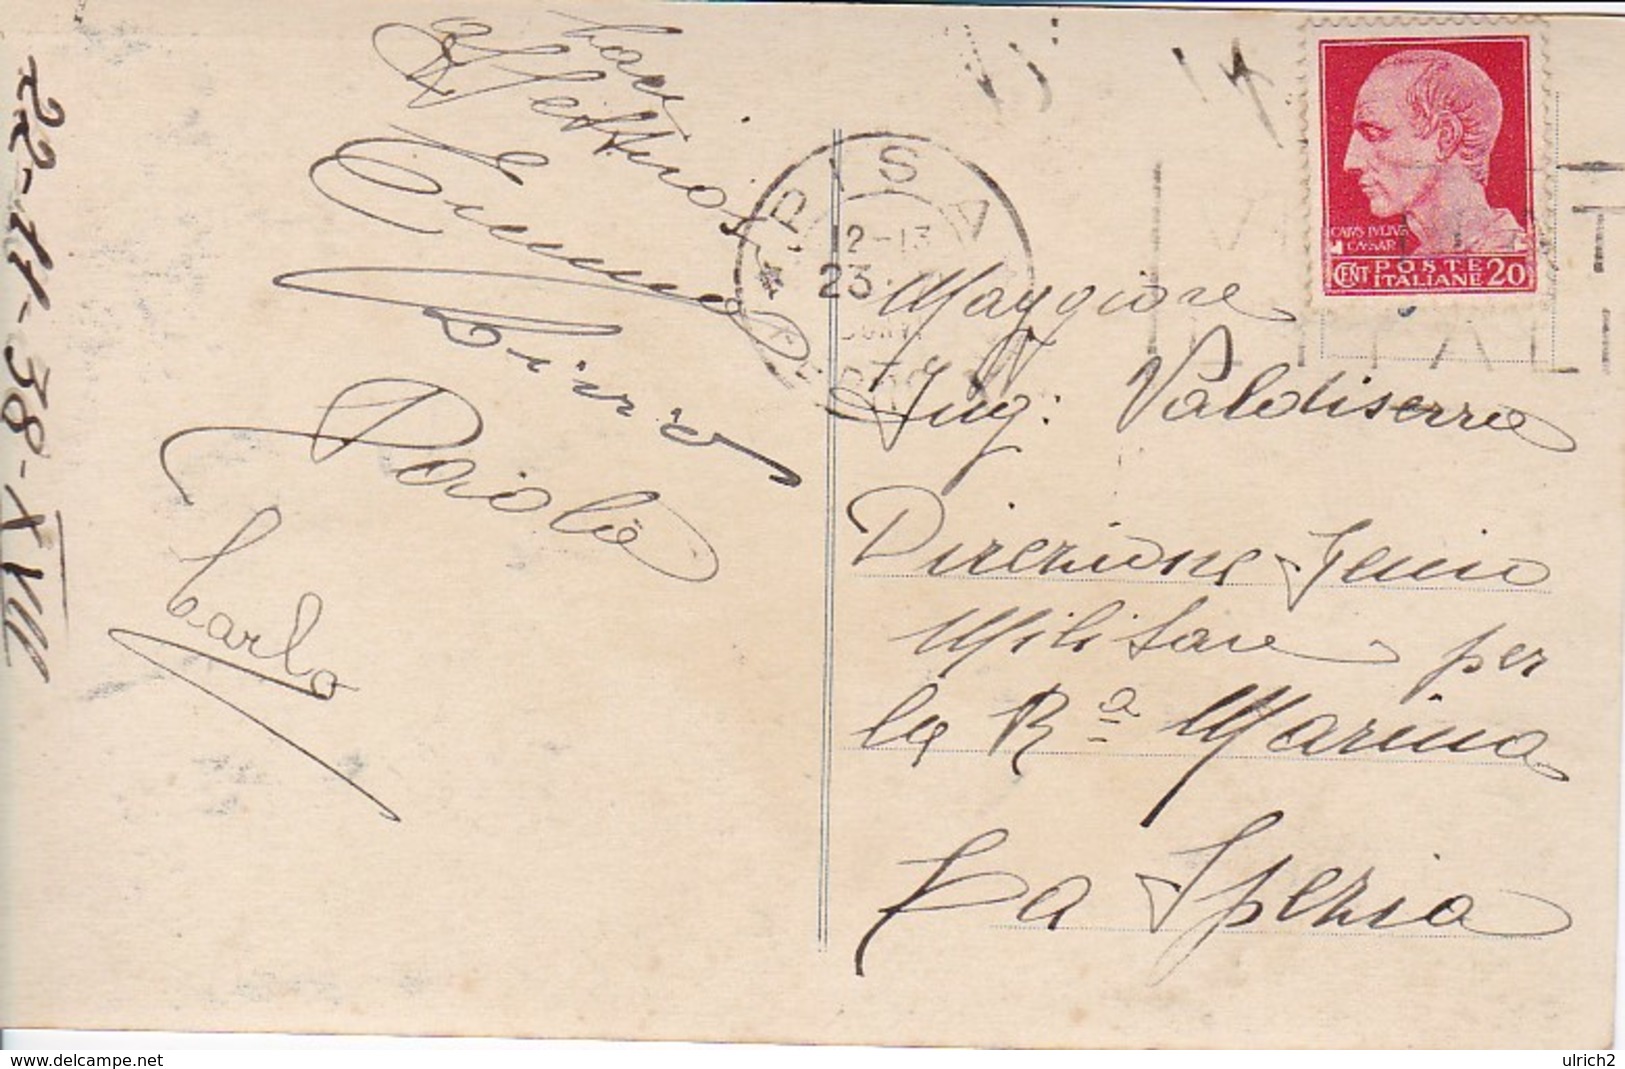 22-11-38-XVII
Cari
affettuosi
Emma
Paola
Carlo
PISA
12-13
23
FERROVIA
CAIVS IVLIVS
CAESAR
CENT POSTE ITALIANE 20
Maggiore
Ing: Valdiserra
Direzione Genio
Militare per
la Rª Marina
La Spezia
www.delcampe.net
ulrich2